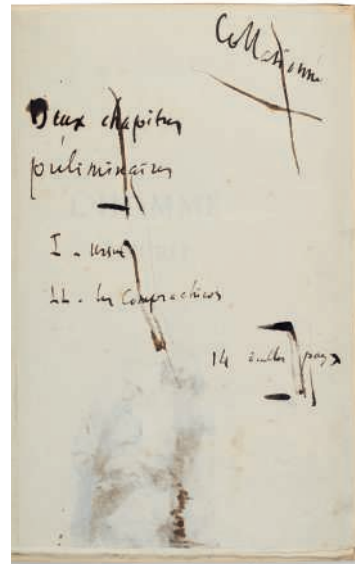 Collationné
Deux chapitres
préliminaires
I - Ursus
II - les Comprachicos
14 pages